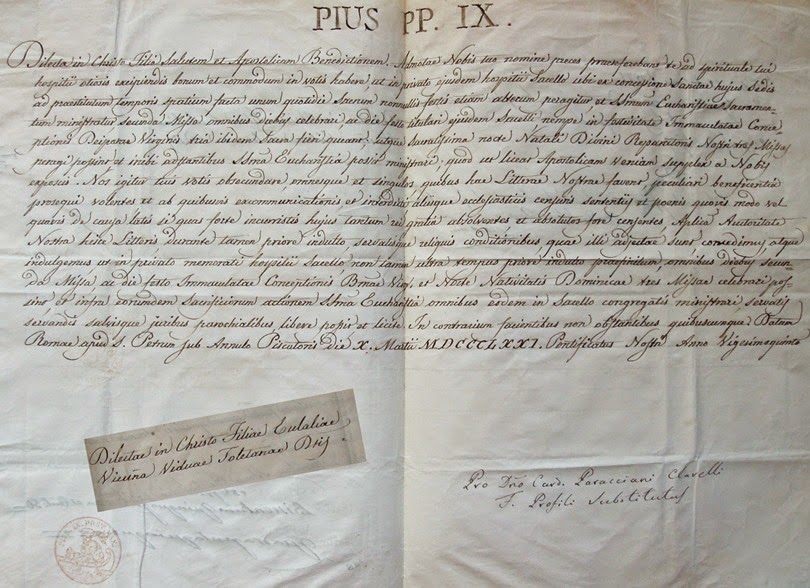 PIUS PP. IX.
Dilecta in Christo Filia Salutem et Apostolicam Benedictionem. Admotae Nobis tuo nomine preces praeseferebant te ad spirituale tui
hospitii etioris excipiendis bonum et commodum in votis habere ut in privato ejusdem hospitii Sacello ubi ex concessione Sanctae hujus Sedis
ad praestitutum temporis spatium facta unum quotidie Sacrum nonnullis festis etiam absecum peragitur et Smum Eucharistiae Sacramen-
tum ministratur Secunda Missa omnibus diebus celebrari ac die festo titulari ejusdem Sacelli nempe in festivitate Immaculatae Conce-
ptionis Deiparae Virginis tria ibidem Sacra fieri queant, utque sacratissima nocte Natali Divini Reparatoris Nostri tres Missae
peragi possint et inibi adstantibus Sma Eucharistia possit ministrari: quod ut liceat Apostolicam veniam supplex a Nobis
exposcis. Nos igitur tuis votis obsecundare, omnesque et singulos quibus hae Litterae Nostrae favent, peculiari beneficentia
prosequi volentes et ab quibusvis excommunicationis et interdicti aliisque ecclesiasticis censuris sententiis et poenis quovis modo vel
quavis de causa latis si quas forte incurristis hujus tantum rei gratia absolventes et absolutos fore censentes, Aplica Auctoritate
Nostra hisce Litteris durante tamen priore indulto servatisque reliquis conditionibus quae illi adjectae sunt concedimus atque
indulgemus ut in privato memorati hospitii Sacello non tamen ultra tempus priore indulto praefinitum omnibus diebus secun-
da Missa, ac die festo Immaculatae Conceptionis Bmae Virgs, et Nocte Nativitatis Dominicae tres Missae celebrari pos-
sint et infra eorumdem Sacrificiorum actionem Sma Eucharistia omnibus eodem in Sacello congregatis ministrari servatis
servandis salvisque juribus parochialibus, libere possit et licite. In contrarium facientibus non obstantibus quibuscumque. Datum
Romae apud S. Petrum sub Annulo Piscatoris die X. Martii MDCCCLXXI. Pontificatus Nostri Anno Vigesimoquinto
Dilectae in Christo Filiae Eulaliae
Vicuña Viduae Toletanae Dris
Pro Dno Card. Paracciani Clarelli
F. Profili Substitutus